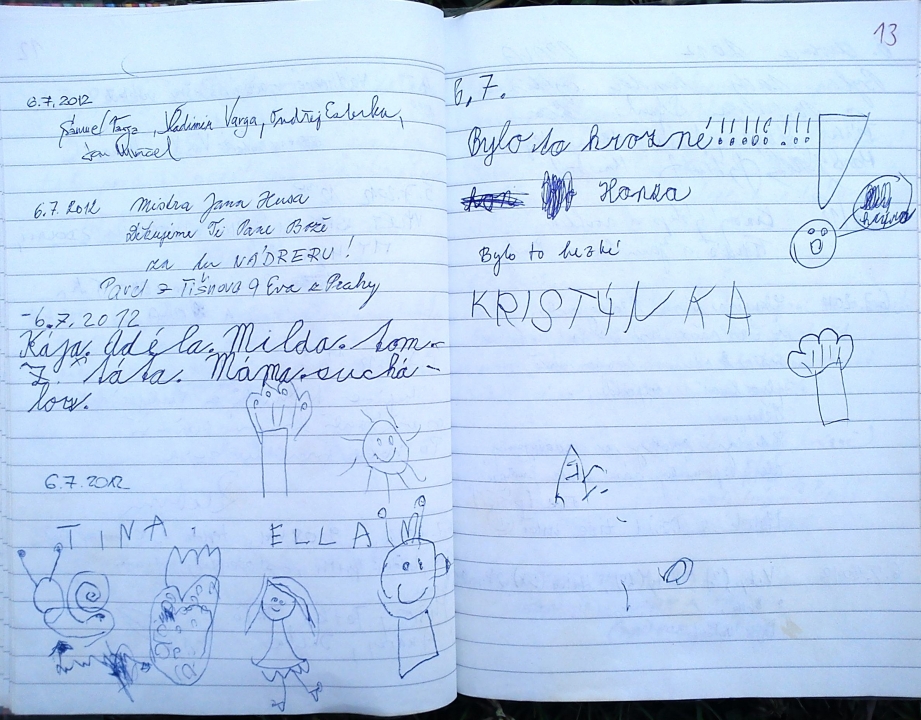 6.7.2012
Samuel Varga, Vladimír Varga, Ondřej
Jan
6.7.2012 Mistra Jana Husa
Děkujeme Ti Pane Bože
za tu NÁDRERU!
Pavel z Tišnova a Eva z Prahy
-6.7.2012
Kája. Adéla. Milda. tom-
táta. Máma. suchá-
lov.
6.7.2012
TINA. ELLA
13
6,7.
Bylo to hrozné!!!!!! !!!
Honza
Bylo to hezké
KRISTÝNKA